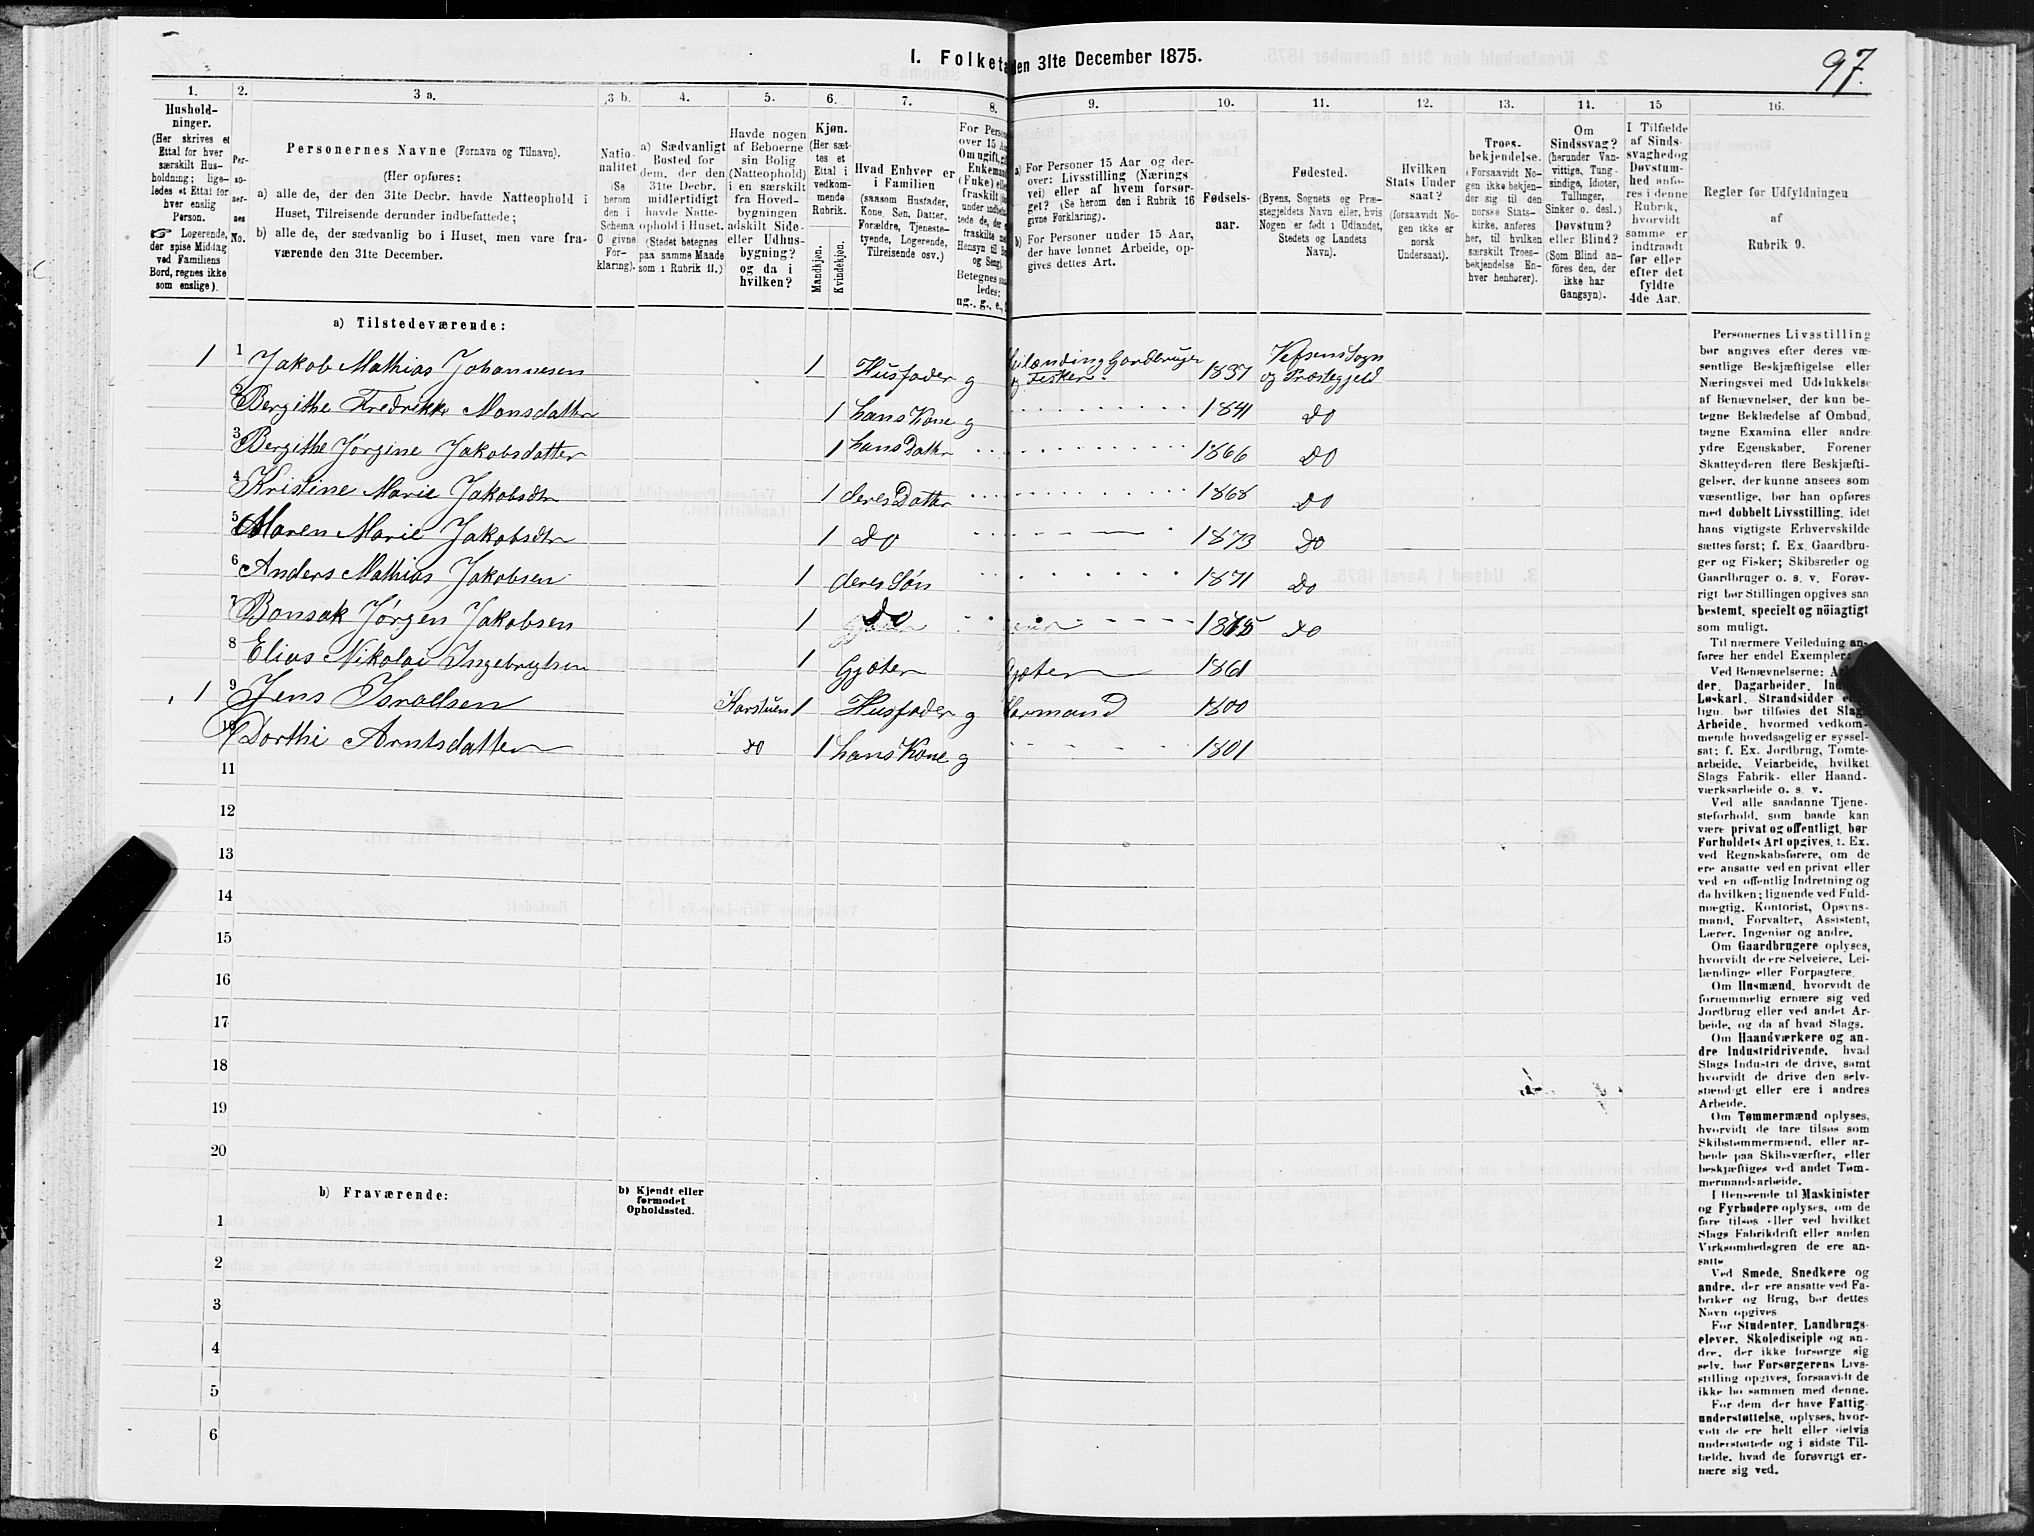 97.
I. Folketa den 31te December 1875.
1. 2. 3 a. 3 b. 4. 5. 6. 7. 8. 9. 10. 11. 12. 13. 14. 15 16.
Hushold-
ninger.
(Her skrives et
Ettal for hver
særskilt Hus-
holdning; lige-
ledes et Ettal for
hver enslig
Person.
☞ Logerende,
der spise Middag
ved Familiens
Bord, regnes ikke
som enslige).
Per-
so-
ner-
nes
No.
Personernes Navne (Fornavn og Tilnavn).
(Her opføres:
a) alle de, der den 31te Decbr. havde Natteophold i
Huset, Tilreisende derunder indbefattede;
b) alle de, der sædvanlig bo i Huset, men vare fra-
værende den 31te December.
Natio-
nalitet
(Se
herom
den i
Schema
C givne
For-
klaring).
a) Sædvanligt
Bosted for
dem, der den
31te Decbr.
midlertidigt
havde Natte-
ophold i Huset.
(Stedet betegnes
paa samme Maade
som i Rubrik 11.)
Havde nogen
af Beboerne
sin Bolig
(Natteophold)
i en særskilt
fra Hoved-
bygningen
adskilt Side-
eller Udhus-
bygning?
og da i
hvilken?
Kjøn.
(Her sæt-
tes et
Ettal i
vedkom-
mende
Rubrik.
Mandkjøn.
Kvindekjøn.
Hvad Enhver er
i Familien
(saasom Husfader,
Kone, Søn, Datter,
Forældre, Tjeneste-
tyende, Logerende,
Tilreisende osv.)
For Person
over 15 Aar
Om ugift, gi
Enkemand
(Enke) elle
fraskilt
under indbe
tede de, der
fraskilte
Hensyn til Bo
og Seng).
Betegnes saa
ledes:
ug., g., e.,
a) For Personer 15 Aar og der-
over: Livsstilling (Nærings
vei) eller af hvem forsør-
get? (Se herom den i Rubrik 16
givne Forklaring).
b) For Personer under 15 Aar,
der have lønnet Arbeide, op-
gives dettes Art.
Fødsels-
aar.
Fødested.
(Byens, Sognets og Præ-
stegjeldets Navn eller, hvis
Nogen er født i Udlandet,
Stedets og Landets
Navn).
Hvilken
Stats Under
saat?
(forsaavidt No-
gen ikke er
norsk
Undersaat).
Troes-
bekjendelse.
(Forsaavidt No-
gen ikke bekjen-
der sig til den
norske Stats-
kirke, anføres
her, til hvilken
særskilt Troes-
bekjendelse En-
hver henhører).
Om
Sindssvag?
(herunder Van-
vittige, Tung-
sindige, Idioter,
Tullinger,
Sinker o. desl.)
Døvstum?
eller Blind?
(Som Blind an-
føres den, der
ikke har
Gangsyn).
I Tilfælde
af Sinds-
svaghedog
Døvstum-
hed anfø-
res i denne
Rubrik,
hvorvidt
samme er
indtraadt
før eller
efter det
fyldte
4de Aar.
Regler for Udfyldningen
af
Rubrik 9.
a) Tilstedeværende:
1 1 Jakob Mathias Johannesen 1 Husfader g Leilænding Gardbruger og Fisker. 1837 Vefsens Sogn og Præstegjeld
2 Bergithe Fredrikke Monsdatter 1 hans Kone g 1841 Do
3 Bergithe Jørgine Jakobsdatter 1 hans Datter 1866 Do
4 Kristine Marie Jakobsdtr 1 deres Datter 1868 Do
5 Maren Marie Jakobsdtr 1 Do 1873 Do
6 Anders Mathias Jakobsen 1 deres Søn 1871 Do
7 Bonsak Jørgen Jakobsen 1 Do 1875 Do
8 Elias Nikolai Ingebrigtsen 1 Gjæter Gjæter 1861
1 9 Jens Israelsen Karstuen 1 Husfader g Kormand 1800
10 Dorthe Arntsdatter Do 1 hans Kone g 1801
11
12
13
14
15
16
17
18
19
20
b) Fraværende:
b) Kjendt eller
formodet
Opholdssted.
1
2
3
4
5
6
Personernes Livsstilling
bør angives efter deres væ-
sentlige Beskjæftigelse eller
Næringsvei med Udelukkelse
af Benævnelser, der kun be-
tegne Beklædelse af Ombud,
tagne Examina eller andre
ydre Egenskaber. Forener
Skatteyderen flere Beskjæfti-
gelser, der kunne ansees som
væsentlige, bør han opføres
med dobbelt Livsstilling, idet
hans vigtigste Erhvervskilde
sættes først; f. Ex. Gaardbru-
ger og Fisker; Skibsreder og
Gaardbruger o. s. v. Forøv-
rigt bør Stillingen opgives saa
bestemt, specielt og nöiagtigt
som muligt.
Til nærmere Veiledning an-
føres her endel Exempler:
Ved Benævnelserne: Ar
der, Dagarbeider, Ind
Løskarl, Strandsidder e
lign. bør tilføies det Slag
Arbeide, hvormed vedkom-
mende hovedsagelig er syssel-
sat; f. Ex. Jordbrug, Tomte-
arbeide, Veiarbeide, hvilket
Slags Fabrik- eller Haand-
værksarbeide o. s. v.
Ved alle saadanne Tjene-
steforhold, som baade kan
være privat og offentligt, bør
Forholdets Art opgives, f. Ex.
ved Regnskabsførere, om de
ere ansatte ved en privat eller
ved en offentlig Indretning og
da hvilken; lignende ved Fuld-
mægtig, Kontorist, Opsyns-
mand, Forvalter, Assistent,
Lærer, Ingeniør og andre.
Om Gaardbrugere oplyses,
hvorvidt de ere Selveiere, Lei-
lændinge eller Forpagtere.
Om Husmænd, hvorvidt de
fornemmelig ernære sig ved
Jordbrug eller ved andet Ar-
beide, og da af hvad Slags.
Om Haandværkere og an-
dre Industridrivende, hvad
Slags Industri de drive, samt
hvorvidt de drive den selv-
stændigt eller ere i andres
Arbeide.
Om Tømmermænd oplyses,
hvorvidt de fare tilsøs som
Skibstømmermænd, eller ar-
beide paa Skibsværfter, eller
beskjæftiges ved andet Tøm-
mermandsarbeide.
I Henseende til Maskinister
og Fyrbødere oplyses, om de
fare tilsøs eller ved hvilket
Slags Fabrikdrift eller anden
Virksomhedsgren de ere an-
satte.
Ved Smede, Snedkere og
andre, der ere ansatte ved Fa-
briker og Brug, bør dettes
Navn opgives
For Studenter, Landbrugs-
elever, Skoledisciple og an-
dre, der ikke forsørge sig
selv, bør Forsørgerens Livs-
stilling opgives, forsaavidt de
ikke bo sammen med denne.
For dem, der have Fattig-
understøttelse, oplyses, hvor-
vidt de ere helt eller delvis
understøttede og i sidste Til-
fælde, hvad de forøvrigt er-
nære sig ved.